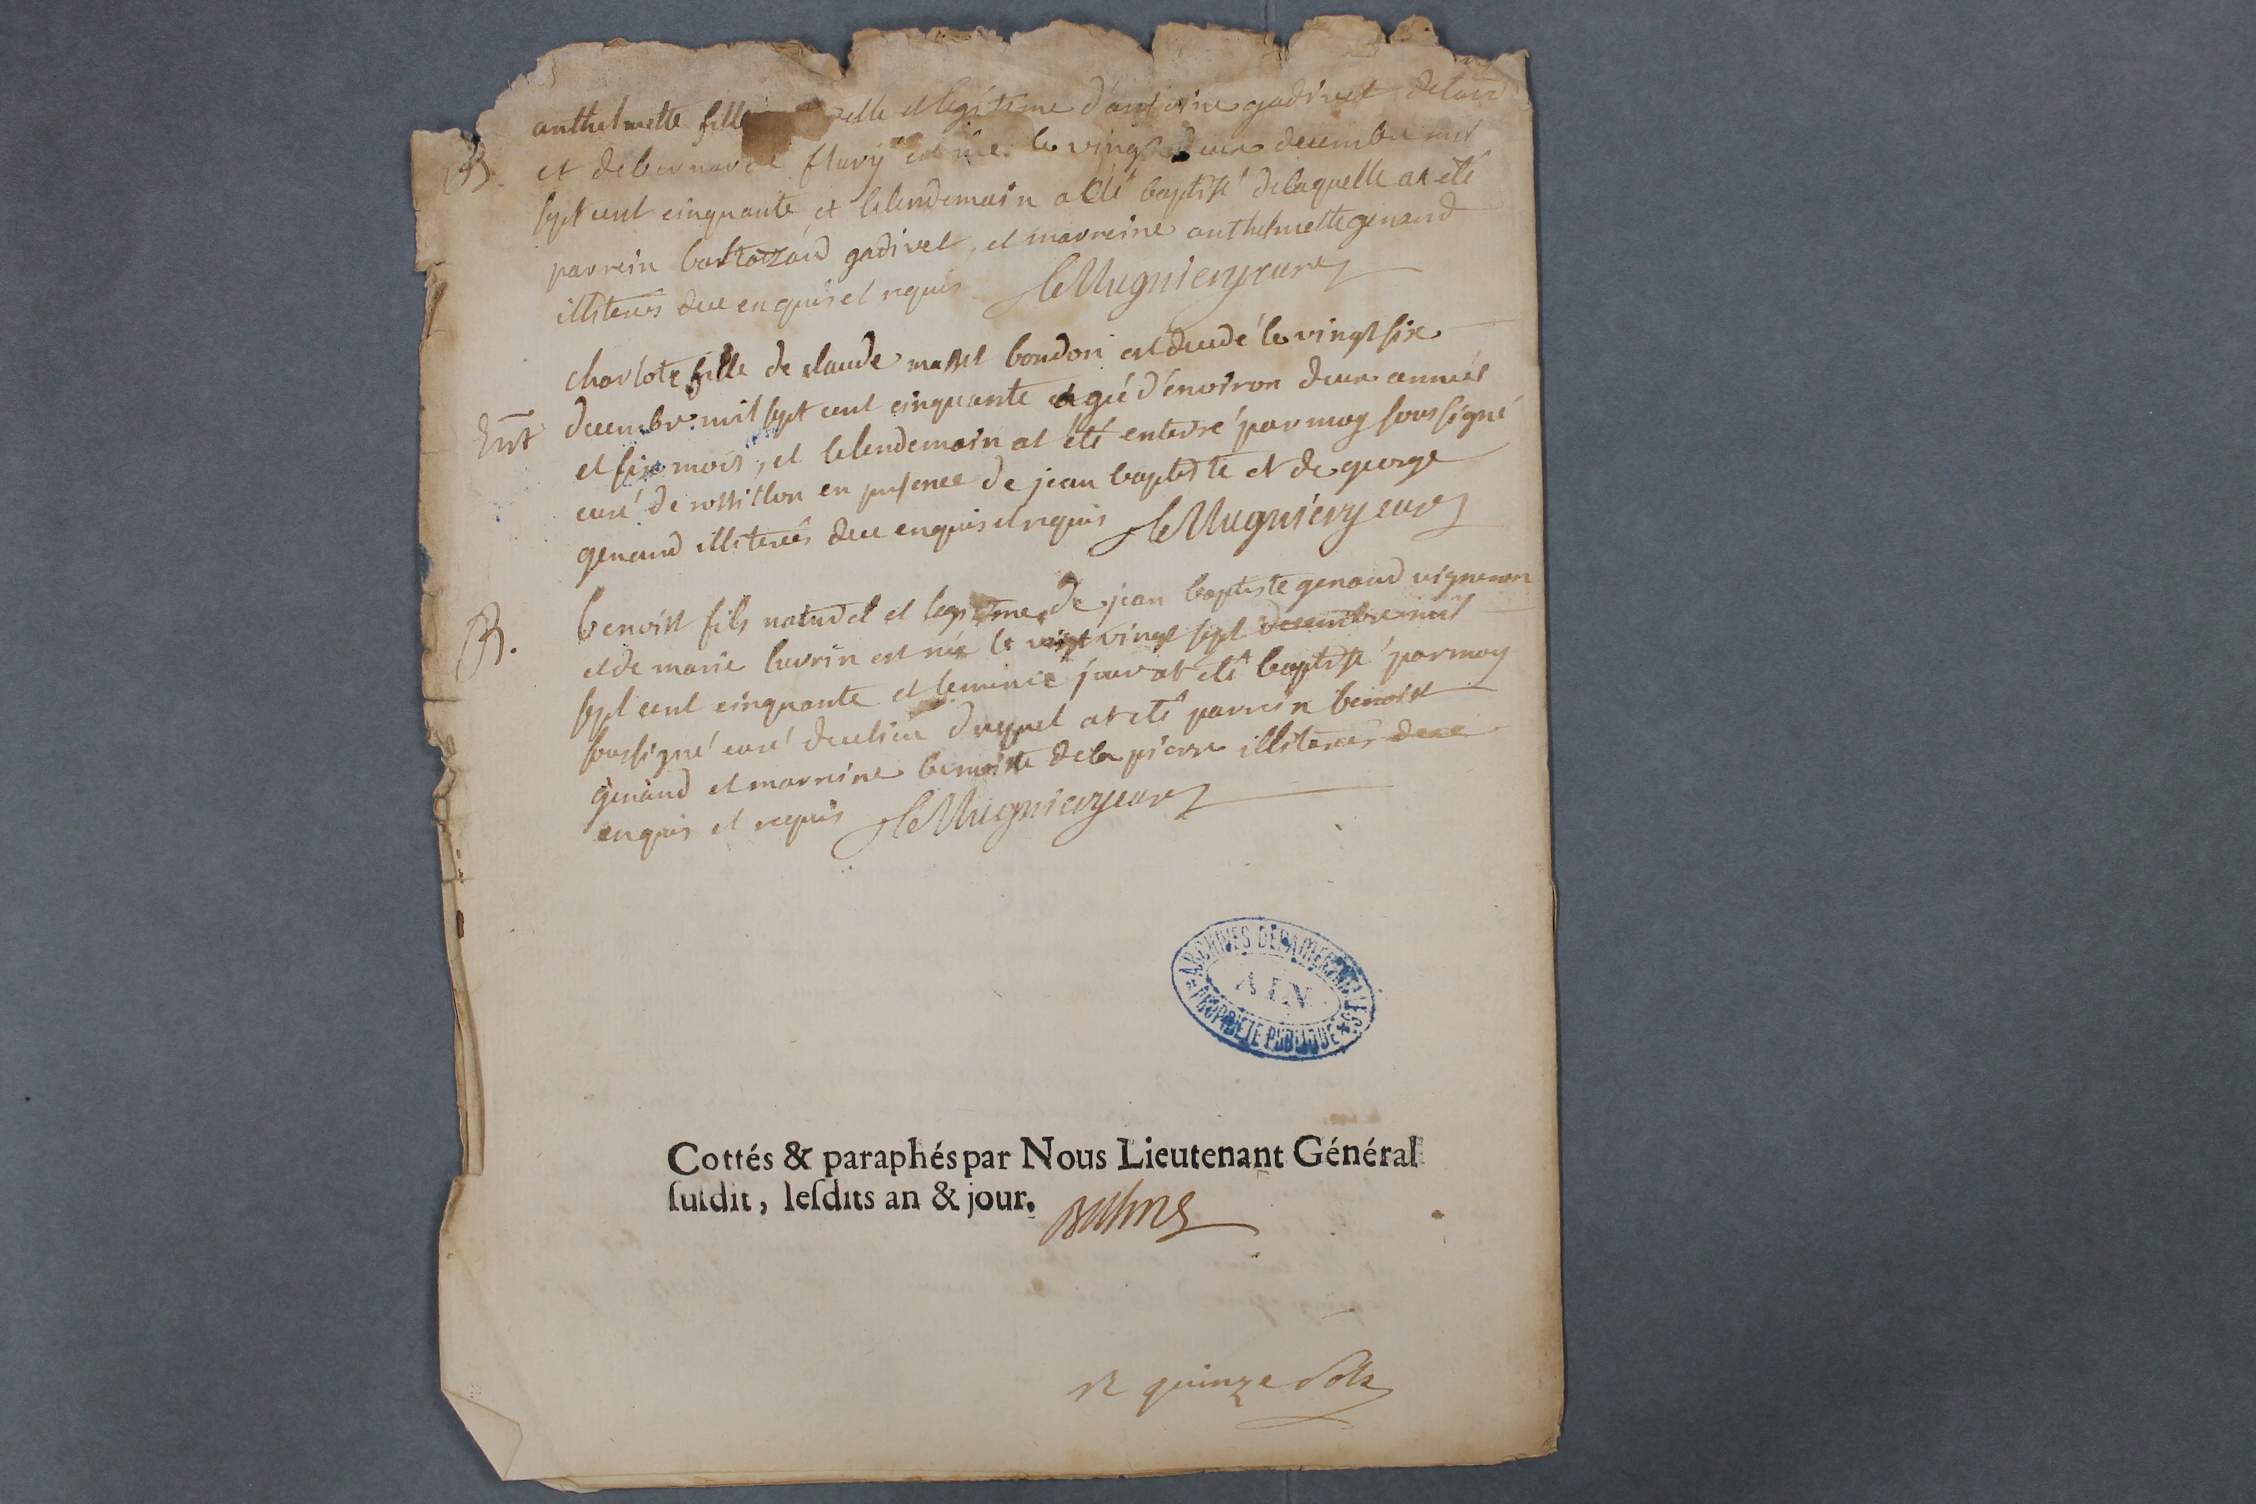 anthelmette fille elle et legitime d'antoine gadivet
B. et de bernarde flury est née le vingt deux decembre mil
sept cent cinquante et le lendemain a été baptisé de laquelle at été
parrein gadivet, et marreine anthelmette genand
illiterés deue enquis et requis Le Mugnier curé
charlote fille de claude bondon est decedé le vingt six
Ent decembre mil sept cent cinquante agé d'environ deux années
et six mois, et le lendemain at été enterré par moy soussigné
curé de rossillon en presence de jean baptiste et de george
genand illiterés deue enquis et requis Le Mugnier curé
B. benoist fils naturel et legitime de jean baptiste genand vigneron
et de marie luvrin est né le vingt sept decembre mil
sept cent cinquante et le même jour at été baptisé par moy
soussigné curé dudit lieu duquel at été parrein benoist
genand et marreine benoiste de la pierre illiterés deue
enquis et requis Le Mugnier curé
ARCHIVES DEPARTEMENTALES
AIN
PROPRIETE PUBLIQUE
Cottés & paraphés par Nous Lieutenant Général
susdit, lesdits an & jour.
R quinze sols